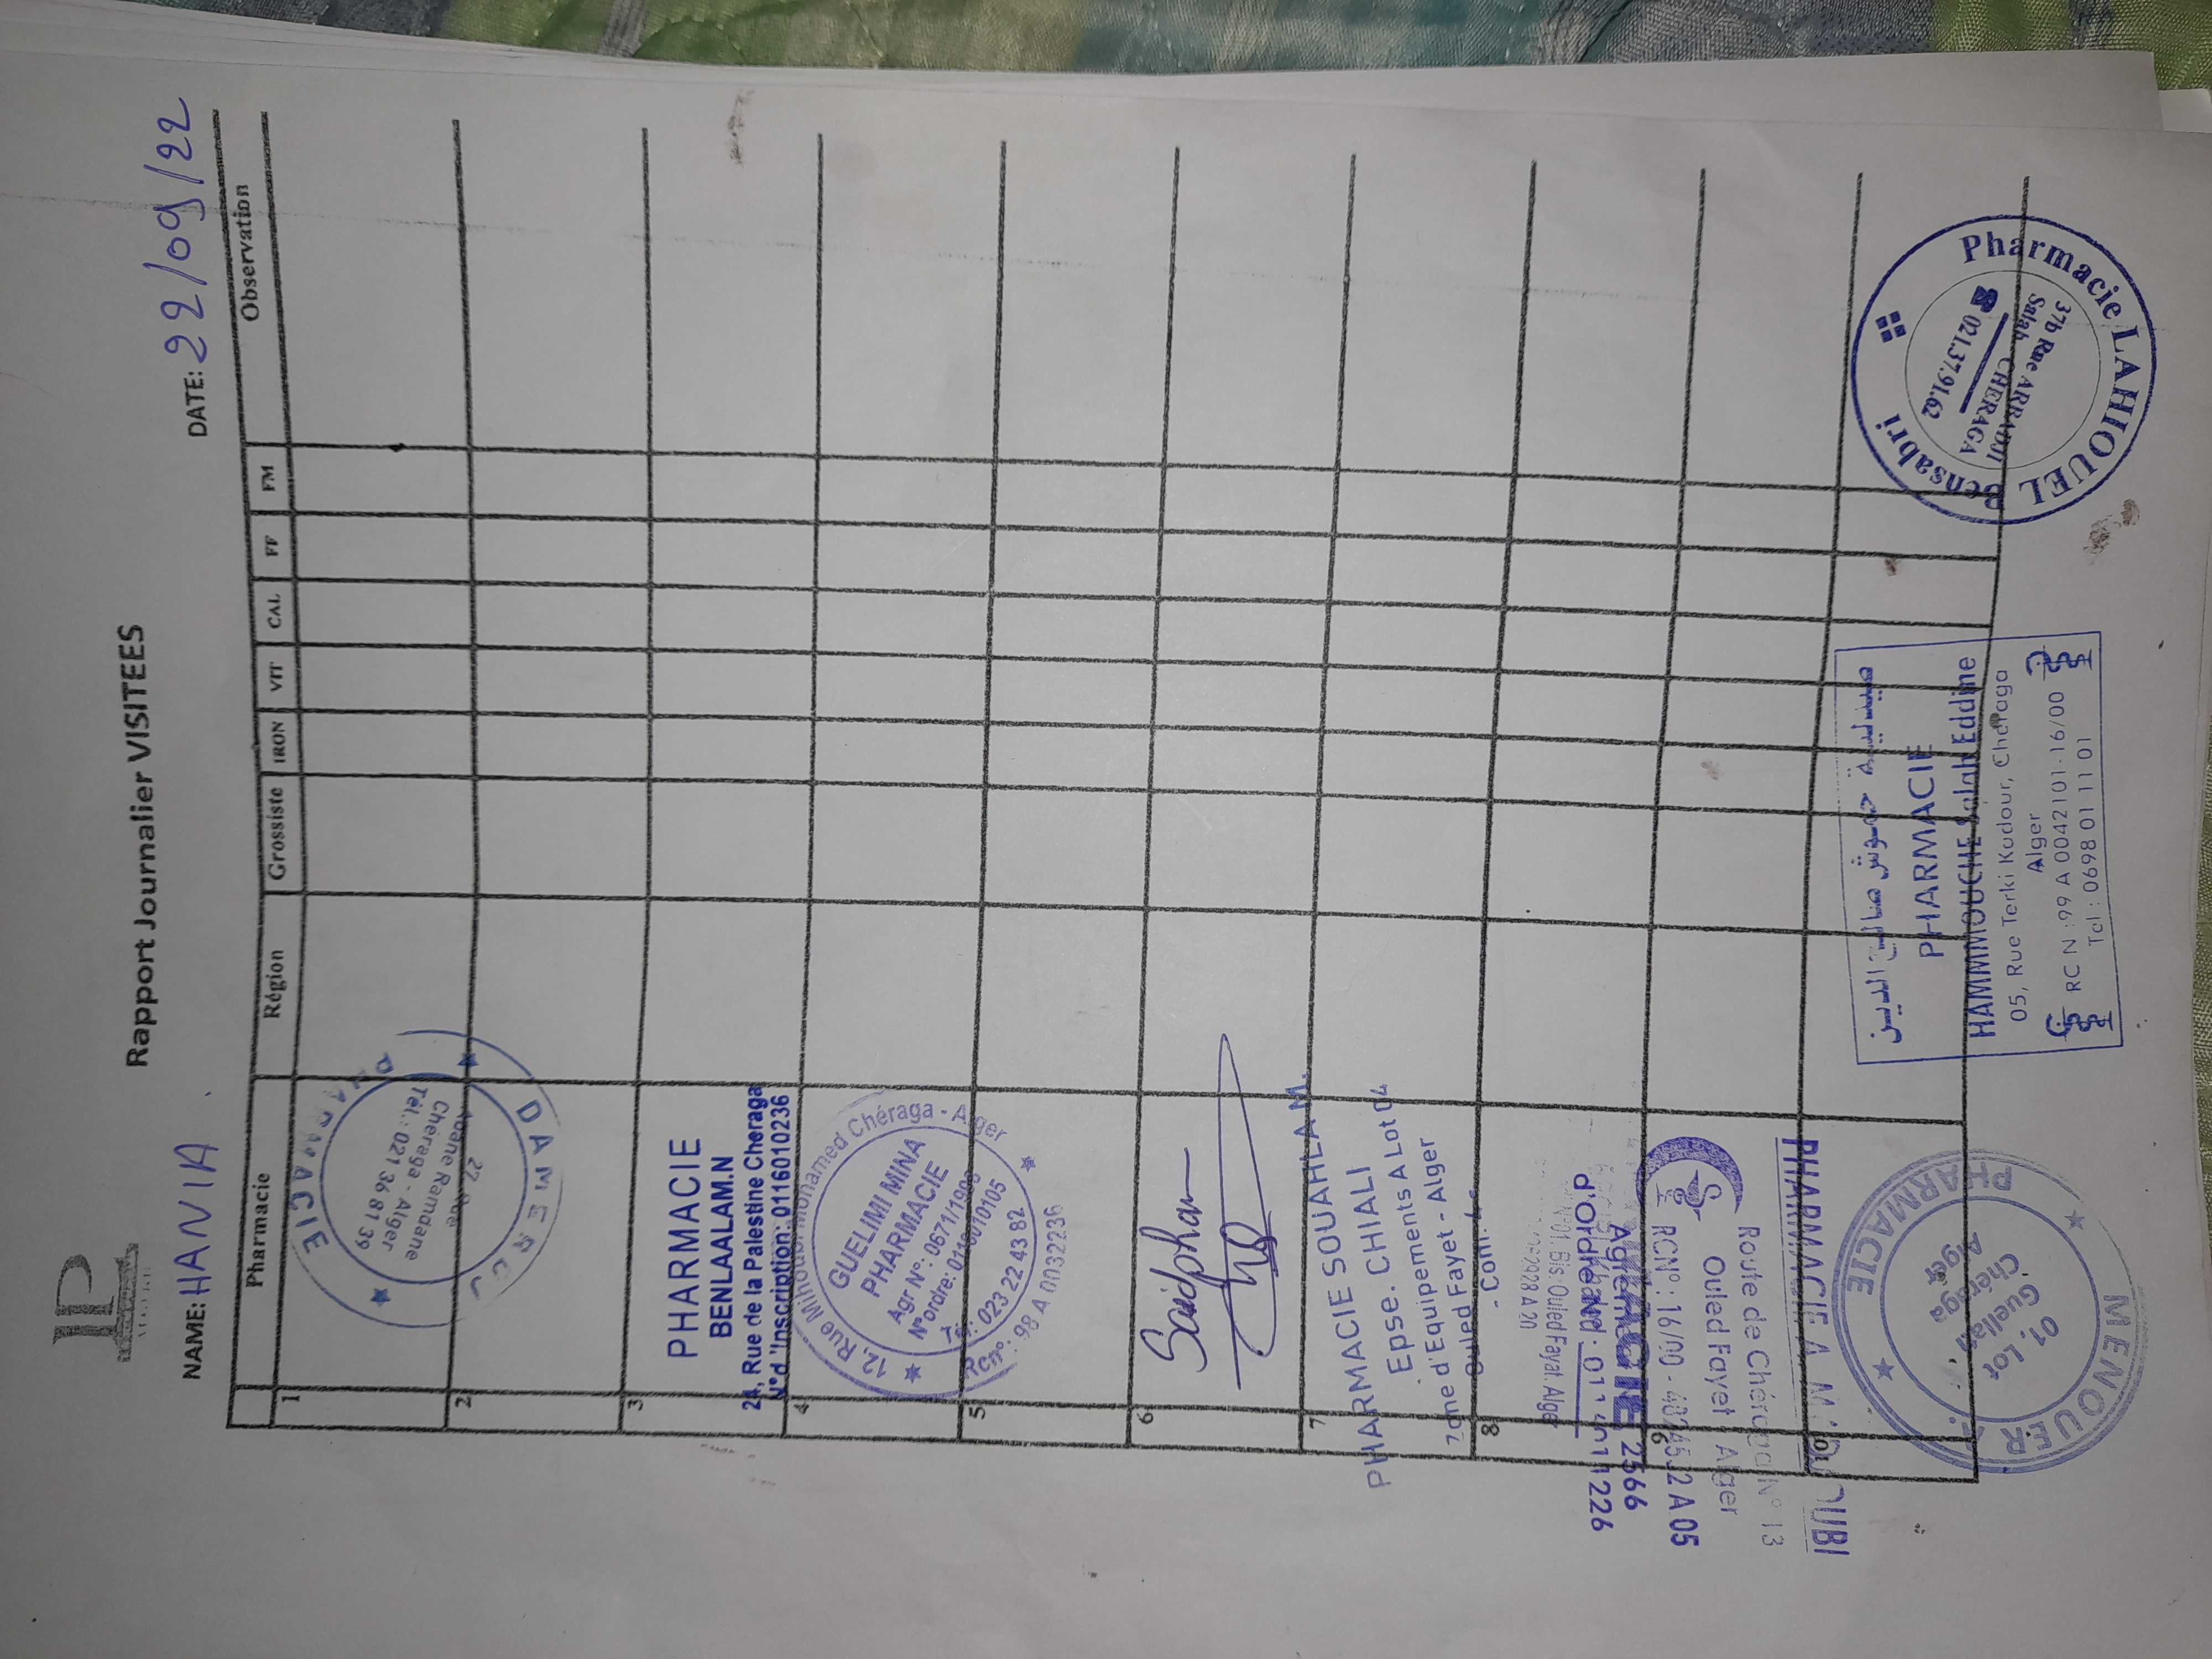 Rapport Journalier VISITEES
NAME: HANIA
DATE: 22/09/22
Pharmacie Région Grossiste IRON VIT CAL FF FM Observation
1
PHARMACIE
27 Rue
Abane Ramdane
Cheraga - Alger
Tél.: 021 36 81 39
2
3
PHARMACIE
BENLAALAM.N
24, Rue de la Palestine Cheraga
N°d 'Inscription: 0116010236
4
12, Rue Mihoubi Mohamed Chéraga - Alger
GUELIMI MINA
PHARMACIE
Agr N°: 0671/1998
N°ordre: 0116010105
Tél: 023 22 43 82
Rcn°: 98 A 0032236
5
6
Saidpham
7
PHARMACIE SOUAHLA M.
Epse. CHIALI
Zone d'Equipements A Lot 04
Ouled Fayet - Alger
- Com. 4 -
8
A 20
N°01. Bis. Ouled Fayat. Alger
9
PHARMACIE A.
Route de Chéraga N° 13
Ouled Fayet Alger
RCN°: 16/00 - A 05
2566
d'Ordre
10
PHARMACIE
MENOUER A.
01, Lot
Guellati
Chéraga
Alger
صيدلية حموش صالح الدين
PHARMACIE
HAMMMOUCHE Salah Eddine
05, Rue Terki Kadour, Cheraga
Alger
RC N :99 A 0042101-16/00
Tel : 0698 01 11 01
Pharmacie LAHIOUEL Bensabri
37b Rue ARRADJI
Salah CHERAGA
021.37.91.62